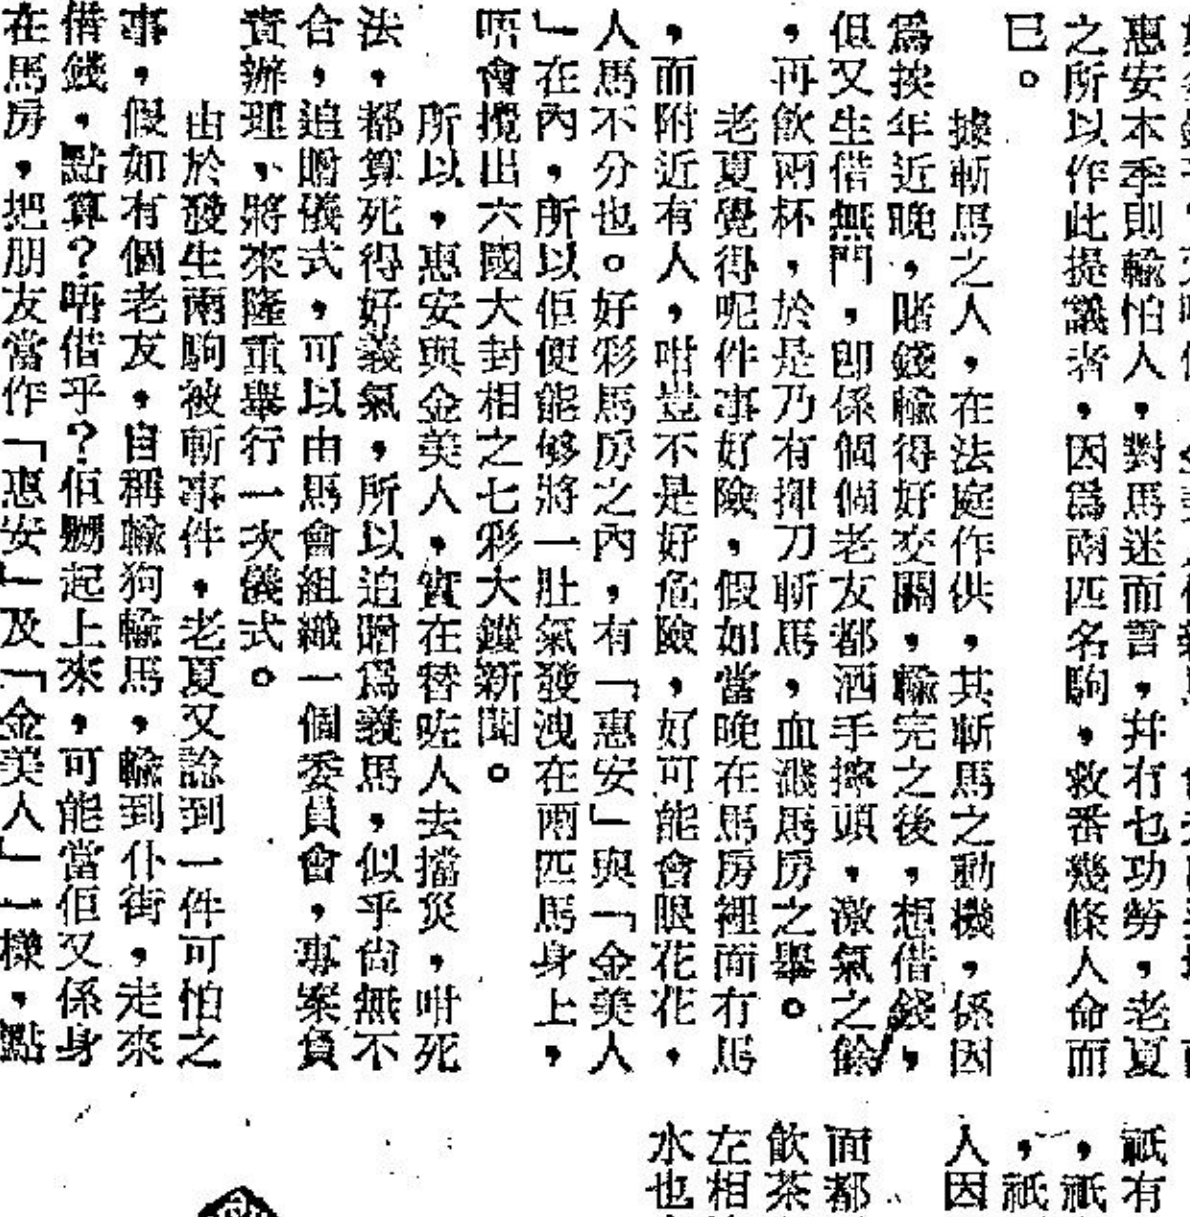 惠安本季則輸怕人，對馬迷而言，幷冇乜功勞，老夏
之所以作此提議者，因爲兩匹名駒，救番幾條人命而
已。
據斬馬之人，在法庭作供，其斬馬之動機，係因
爲挨年近晚，賭錢輸得好交關，輸完之後，想借錢，
但又生借無門，即係個個老友都洒手擰頭，激氣之餘
，再飲兩杯，於是乃有揮刀斬馬，血濺馬房之舉。
老夏覺得呢件事好險，假如當晚在馬房裡面冇馬
，而附近有人，咁豈不是好危險，好可能會眼花花，
人馬不分也。好彩馬房之內，有「惠安」與「金美人
」在內，所以佢便能够將一肚氣發洩在兩匹馬身上，
唔會攪出六國大封相之七彩大鑊新聞。
所以，惠安與金美人，實在替咗人去擋災，咁死
法，都算死得好義氣，所以追贈爲義馬，似乎尙無不
合，追贈儀式，可以由馬會組織一個委員會，專案負
責辦理，將來隆重舉行一次儀式。
由於發生兩駒被斬事件，老夏又諗到一件可怕之
事，假如有個老友，自稱輸狗輸馬，輸到仆街，走來
借錢，點算？唔借乎？佢嬲起上來，可能當佢又係身
在馬房，把朋友當作「惠安」及「金美人」一樣，點
祇有
，祇
，祇
人因
面都
飲茶
左相
水也